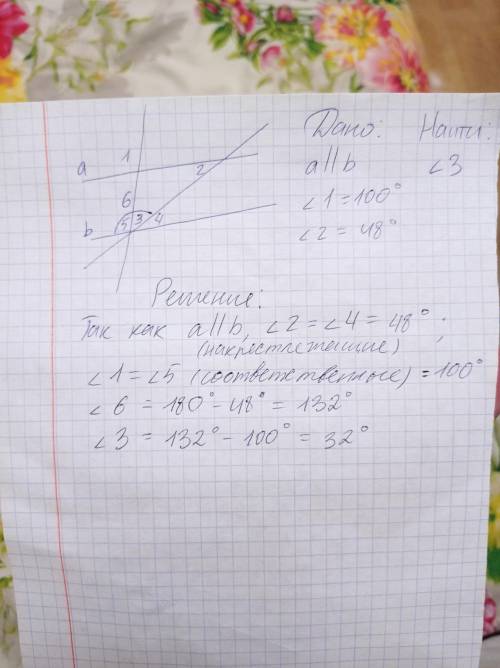 Дано: Найти:
a||b ∠3
∠1=100°
∠2=48°
a 1 2
6
b 5 3 4
Решение:
Так как a||b, ∠2=∠4=48°;
(накрестлежащие)
∠1=∠5 (соответственные)=100°
∠6=180°-48°=132°
∠3=132°-100°=32°